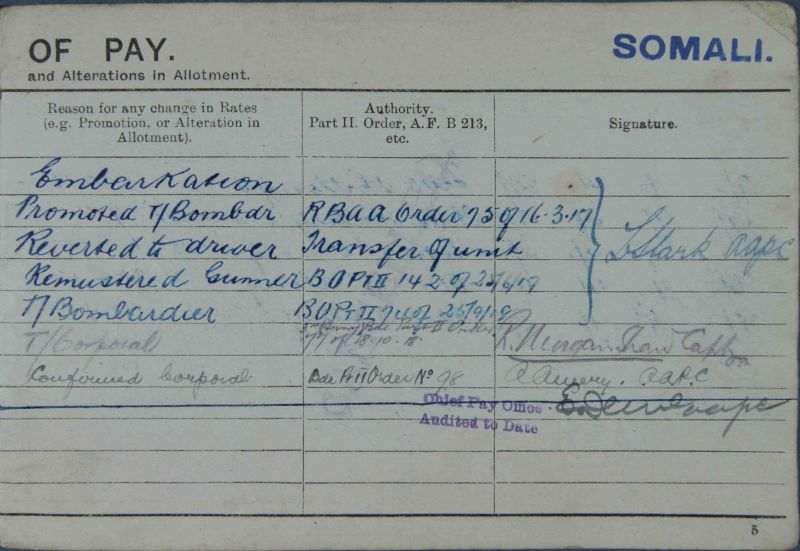 OF PAY.
SOMALI.
and Alterations in Allotment.
Reason for any change in Rates
(e.g. Promotion, or Alteration in
Allotment).
Authority.
Part II. Order, A.F. B 213,
etc.
Signature.
Embarkation
Promoted T/Bombdr RBAA Order 75 of 16.3.17
Reverted to driver Transfer of unit
Stark AAPC
Remustered Gunner BO Pt II 142 of
T/Bombardier BO Pt II 74 of 25/9/18
T/Corporal
18.10.18
R. Morgan Shaw
Confirmed Corporal Bde Pt II Order No 98 AAPC
Chief Pay Office
Audited to Date
5